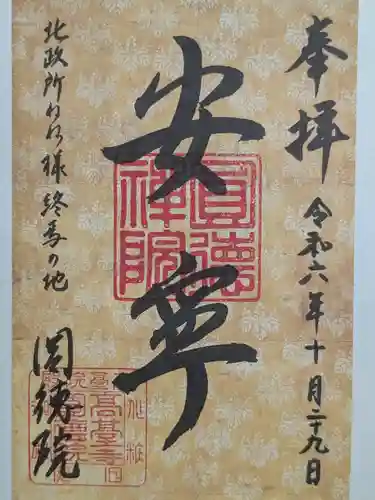 奉拝
令和六年十月二十九日
安寧
北政所ねね様終焉の地
圓徳院
圓徳禅院
高臺寺